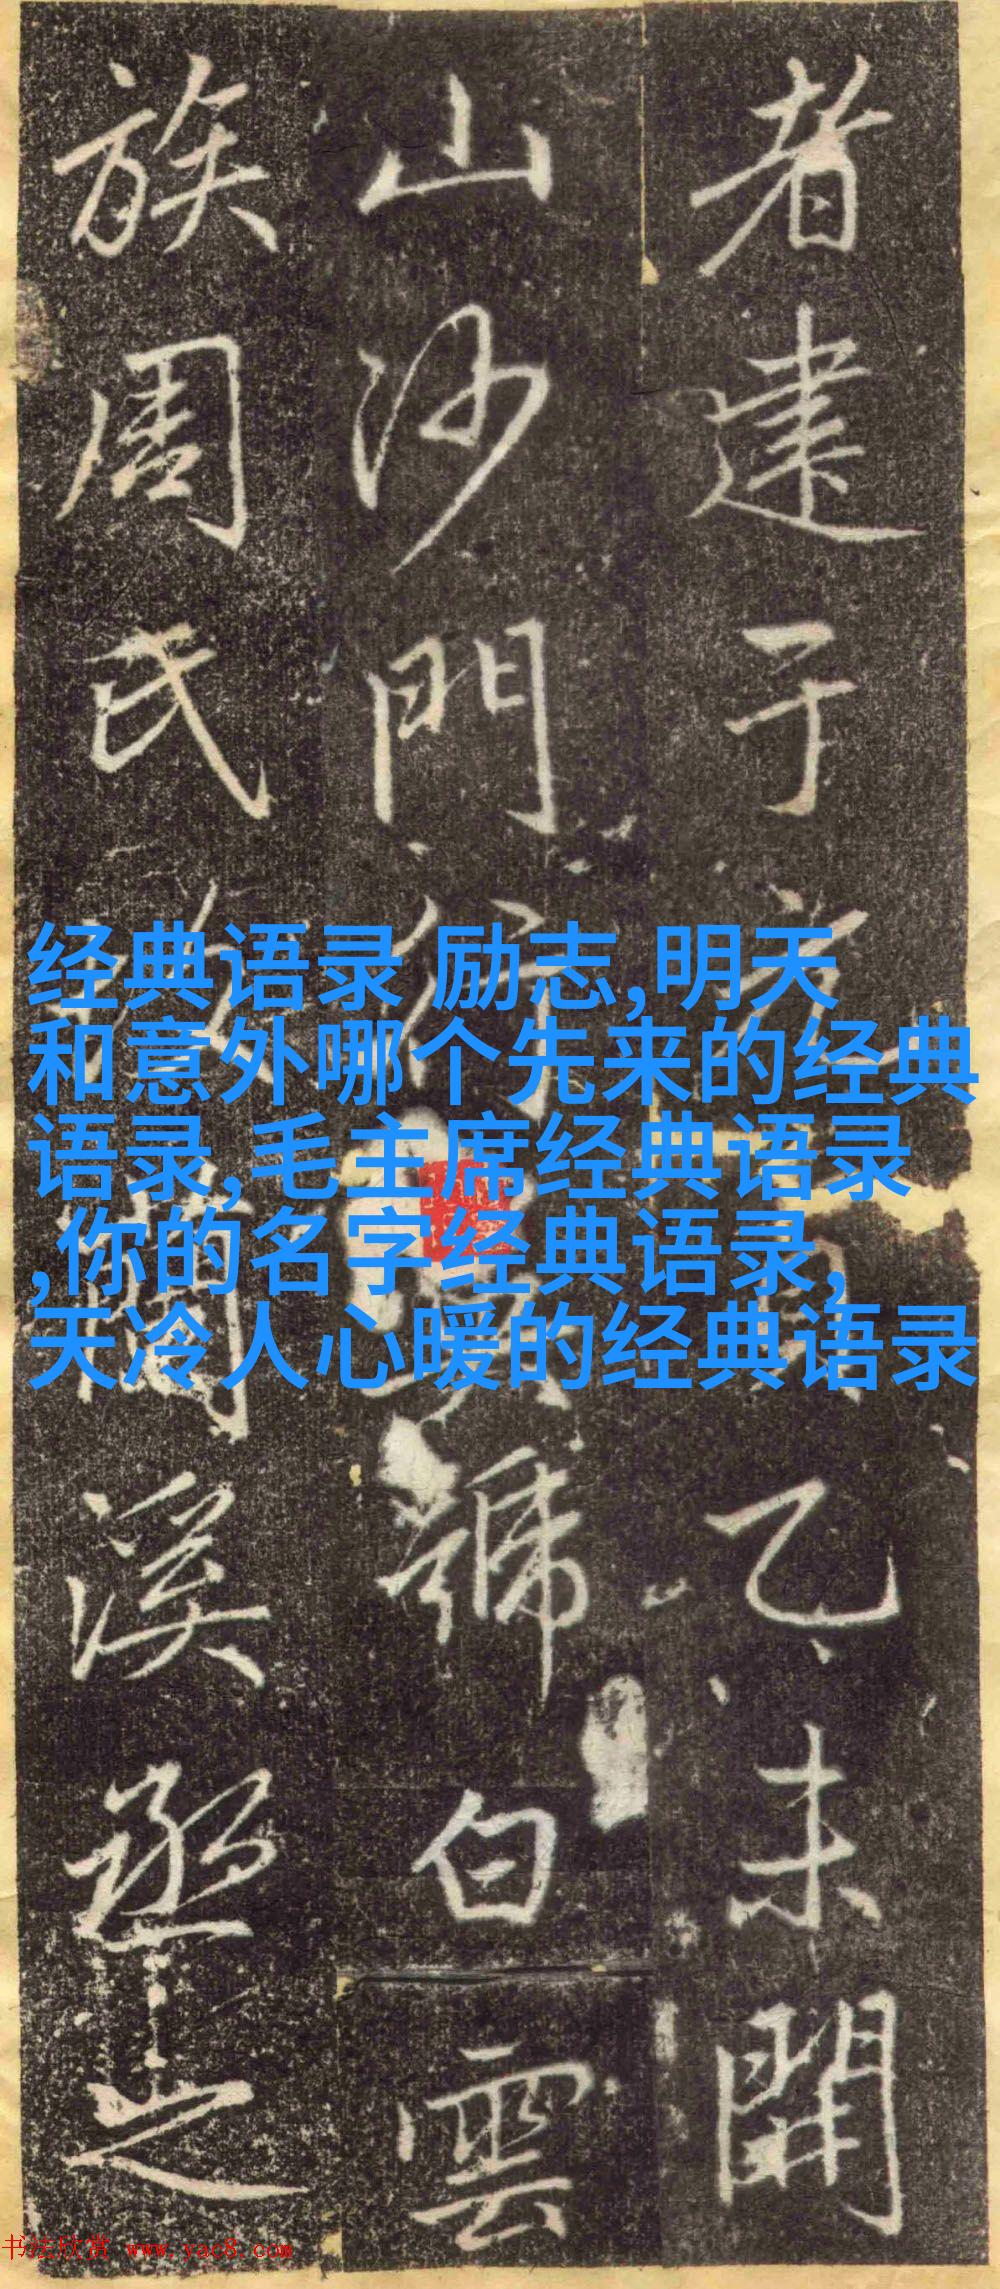 者建于元
乙未開
山沙門
號白雲
族周氏
蘭溪丞之
经典语录 励志,明天
和意外哪个先来的经典
语录,毛主席经典语录
,你的名字经典语录,
天冷人心暖的经典语录
书法欣赏 www.yac8.com